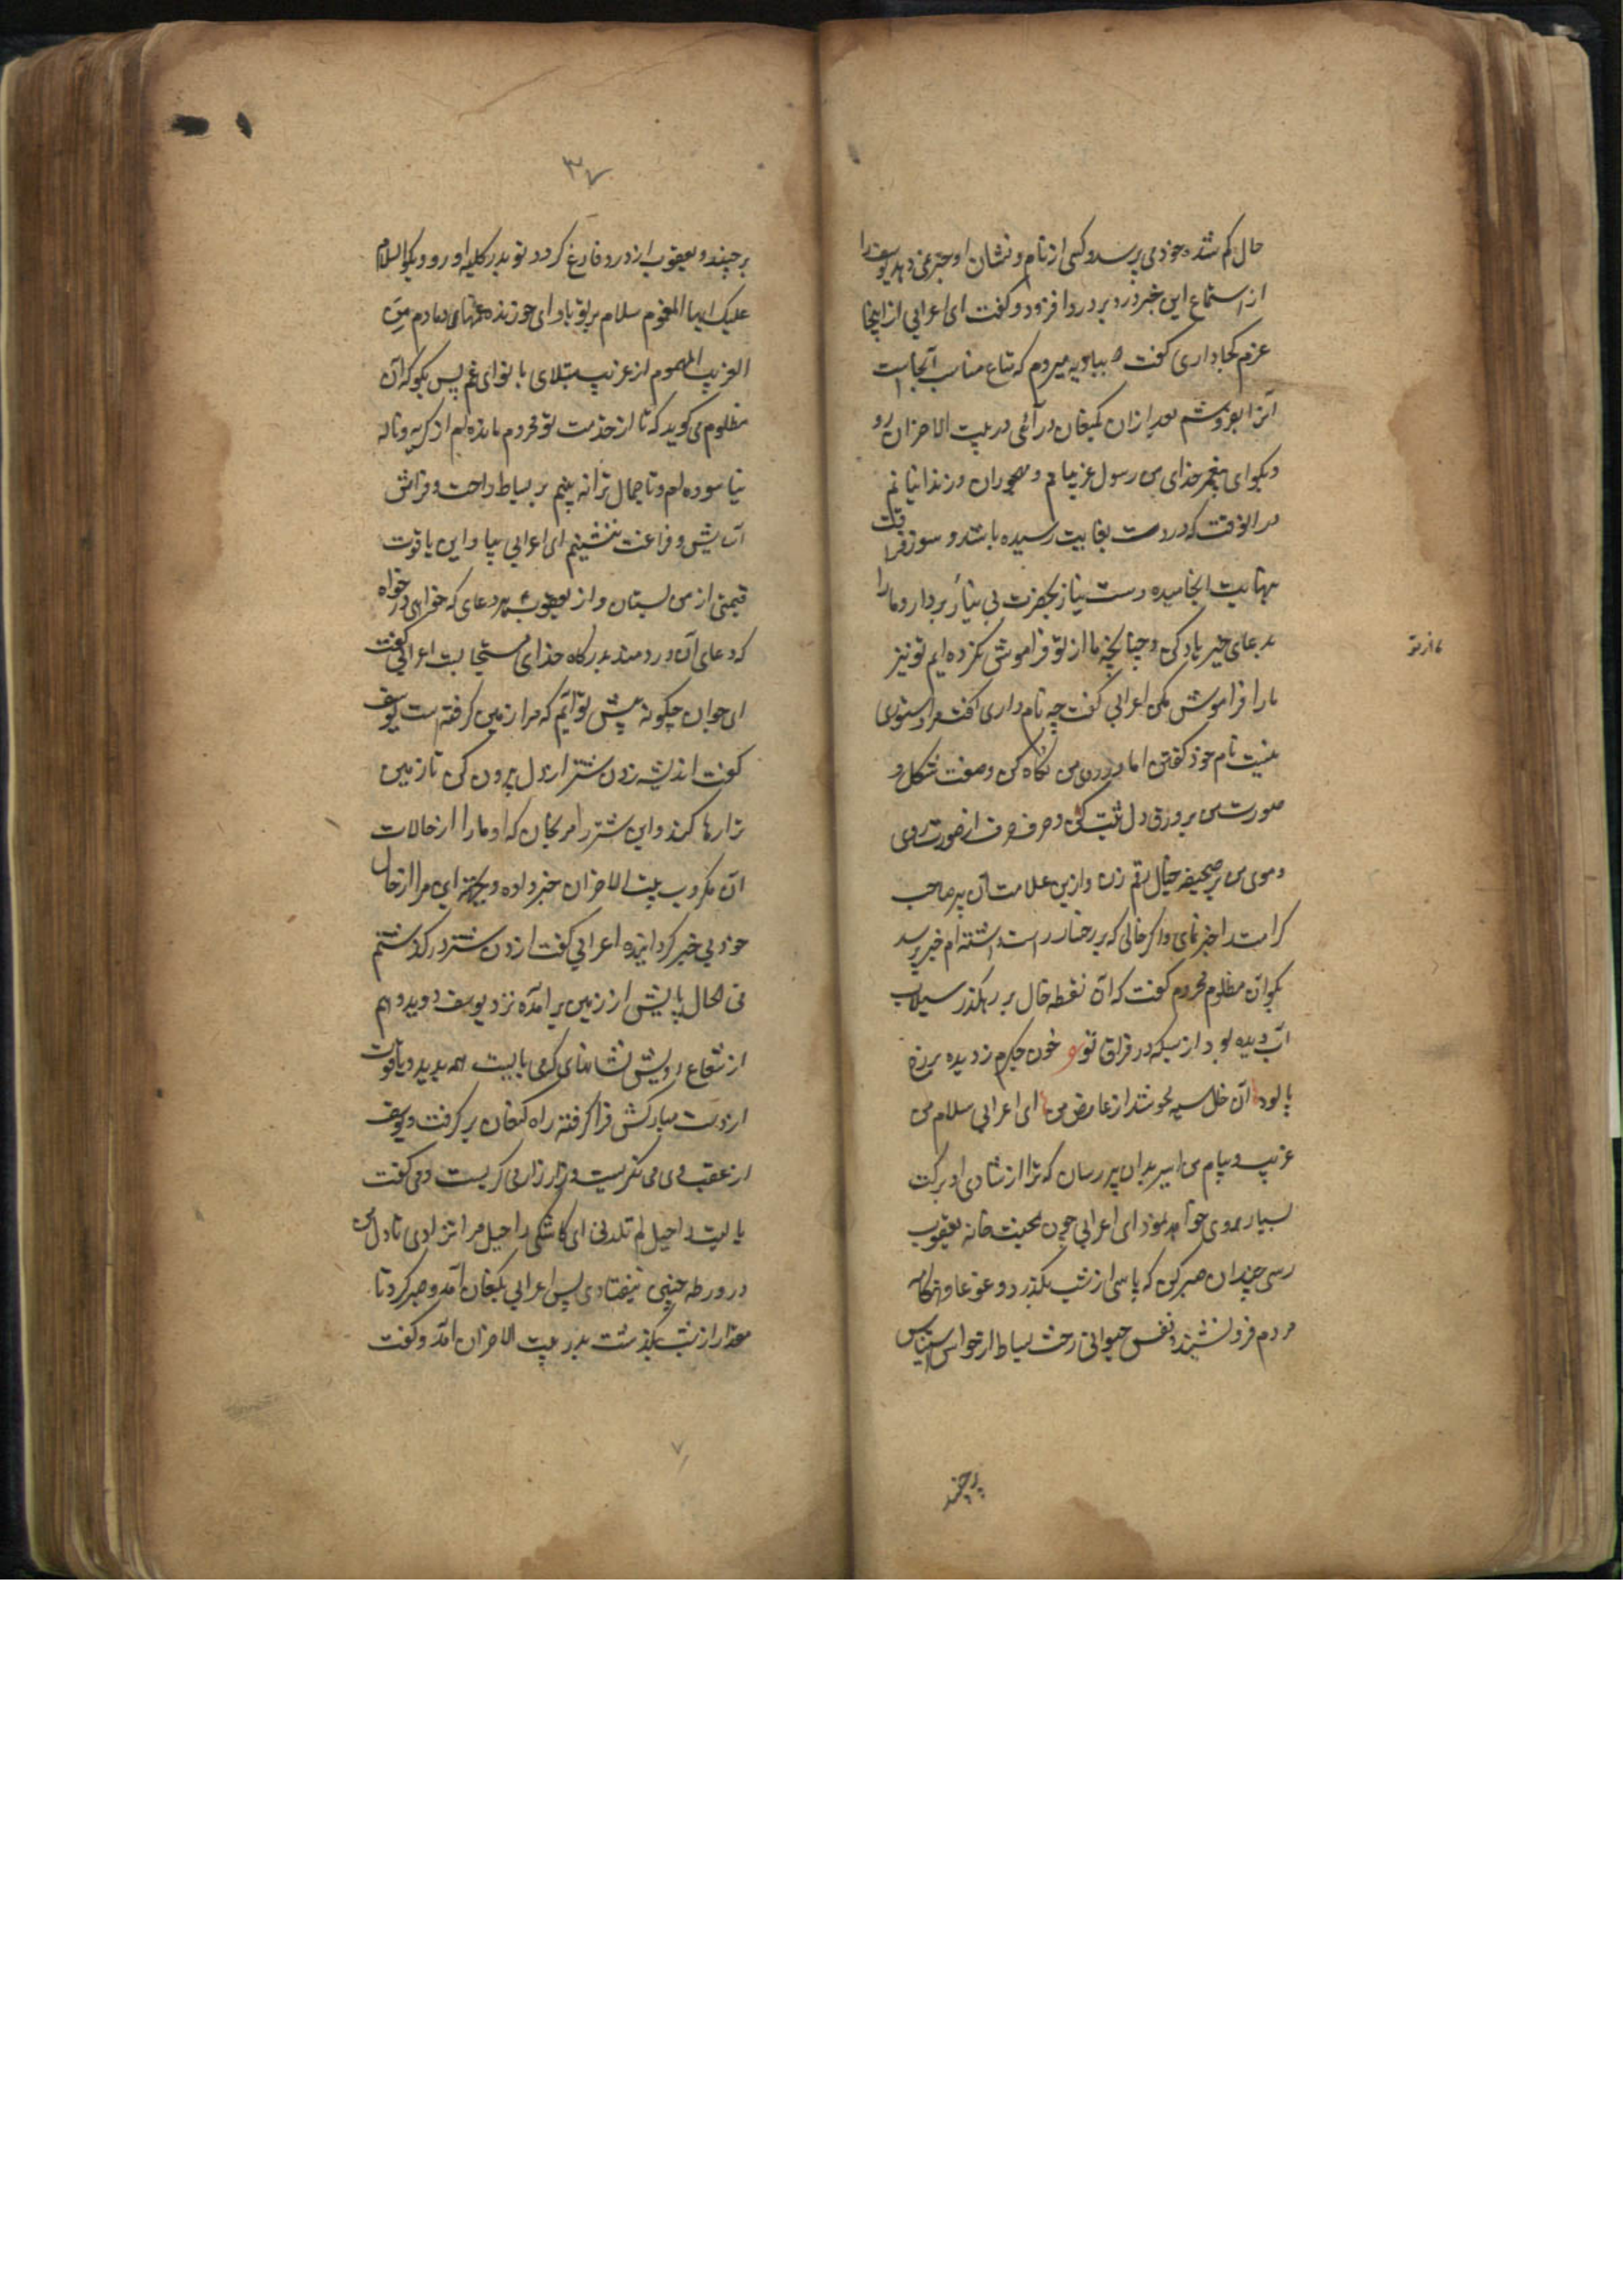 حال کم شده خود می پرسد و کسی از نام و نشان او خبر نمی دهد یوسف را
از استماع این خبر درد بر درد افزود و کفت ای اعرابی از اینجا
عزم کجا داری کفت بباویه میروم که متاع مناسب آنجاست
آنرا بفروشم بعد ازان بکنعان درآئی در بیت الاحزان رو
و بکو ای پیغمبر خدای من رسول غریبانم و مهجوران و زندانیانم
در انوقت که دردت بغایت رسیده باشد و سوز فراقت
بنهایت انجامیده دست نیاز بحضرت بی نیاز بردار و ما را
بدعای خیر یاد کن و چنانچه ما از تو فراموش نکرده ایم تو نیز
ما را فراموش مکن اعرابی کفت چه نام داری کفت مرا دستوری
نیست نام خود کفتن اما در روی من نکاه کن و صفت شکل و
صورت من بر ورق دل ثبت کن و حرف حرف از صورت روی
و موی من بر صحیفه خیال رقم زن و ازین علامت آن پیر صاحب
کرامت را خبر نمای و اکر خالی که بر رخسار راست داشته ام خبر پرسد
بکو آن مظلوم محروم کفت که آن نقطه خال بر رهکذر سیلاب
آب دیده بود از بسکه در فراق تو خون جکرم ز دیده بر رخ
پالود آن خال سیه محو شد از عارض من ای اعرابی سلام من
غریب و پیام من اسیر بدان پیر رسان که ترا از شادی او برکت
بسیار روی خواهد نمود ای اعرابی چون بمحنت خانه یعقوب
رسی چندان صبر کن که پاسی از شب بکذرد و غوغا و هنکامه
مردم فرو نشیند و نفس حیوانی رخت بساط از حواس استیناس
برچیند
۳۷
برچیند و یعقوب از درد فارغ کردد تو بدر کلبه او رو و بکو السلام
علیک ایها المغموم سلام بر تو باد ای خورنده غمهای دمادم من
الغریب المهموم از غریب مبتلای با نوای غم پس بکو که آن
مظلوم می کوید که تا از خدمت تو محروم مانده ام از کریه و ناله
نیاسوده ام و تا جمال ترا نه بینم بر بساط راحت و فراش
آسایش و فراغت ننشینم ای اعرابی بیا و این یاقوت
قیمتی از من بستان و از یعقوب هر دعای که خواهی درخواه
که دعای آن دردمند بدرکاه خدای مستجابست اعرابی کفت
ای جوان چکونه پیش تو آیم که مرا زمین کرفته است یوسف
کفت اندیشه زدن شتر از دل بیرون کن تا زمین
ترا رها کند و این شتر را مرنجان که او ما را از حالات
آن مکروب بیت الاحزان خبر داده و مرا از حال
خود بی خبر کردانیده اعرابی کفت از زدن شتر درکذشتم
فی الحال پایش از زمین بر آمده نزد یوسف دوید و هم
از شعاع رویش نشانهای که می بایست همه بدید و یاقوت
از دست مبارکش فرا کرفته راه کنعان بر کرفت و یوسف
از عقب وی می نکریست و زار زار می کریست و می کفت
یا لیت راحیل لم تلدنی ای کاشکی راحیل مرا نزادی تا دل من
در ورطه چنین نیفتادی پس اعرابی بکنعان آمد و صبر کرد تا
مقدار از شب بکذشت بدر بیت الاحزان آمد و کفت